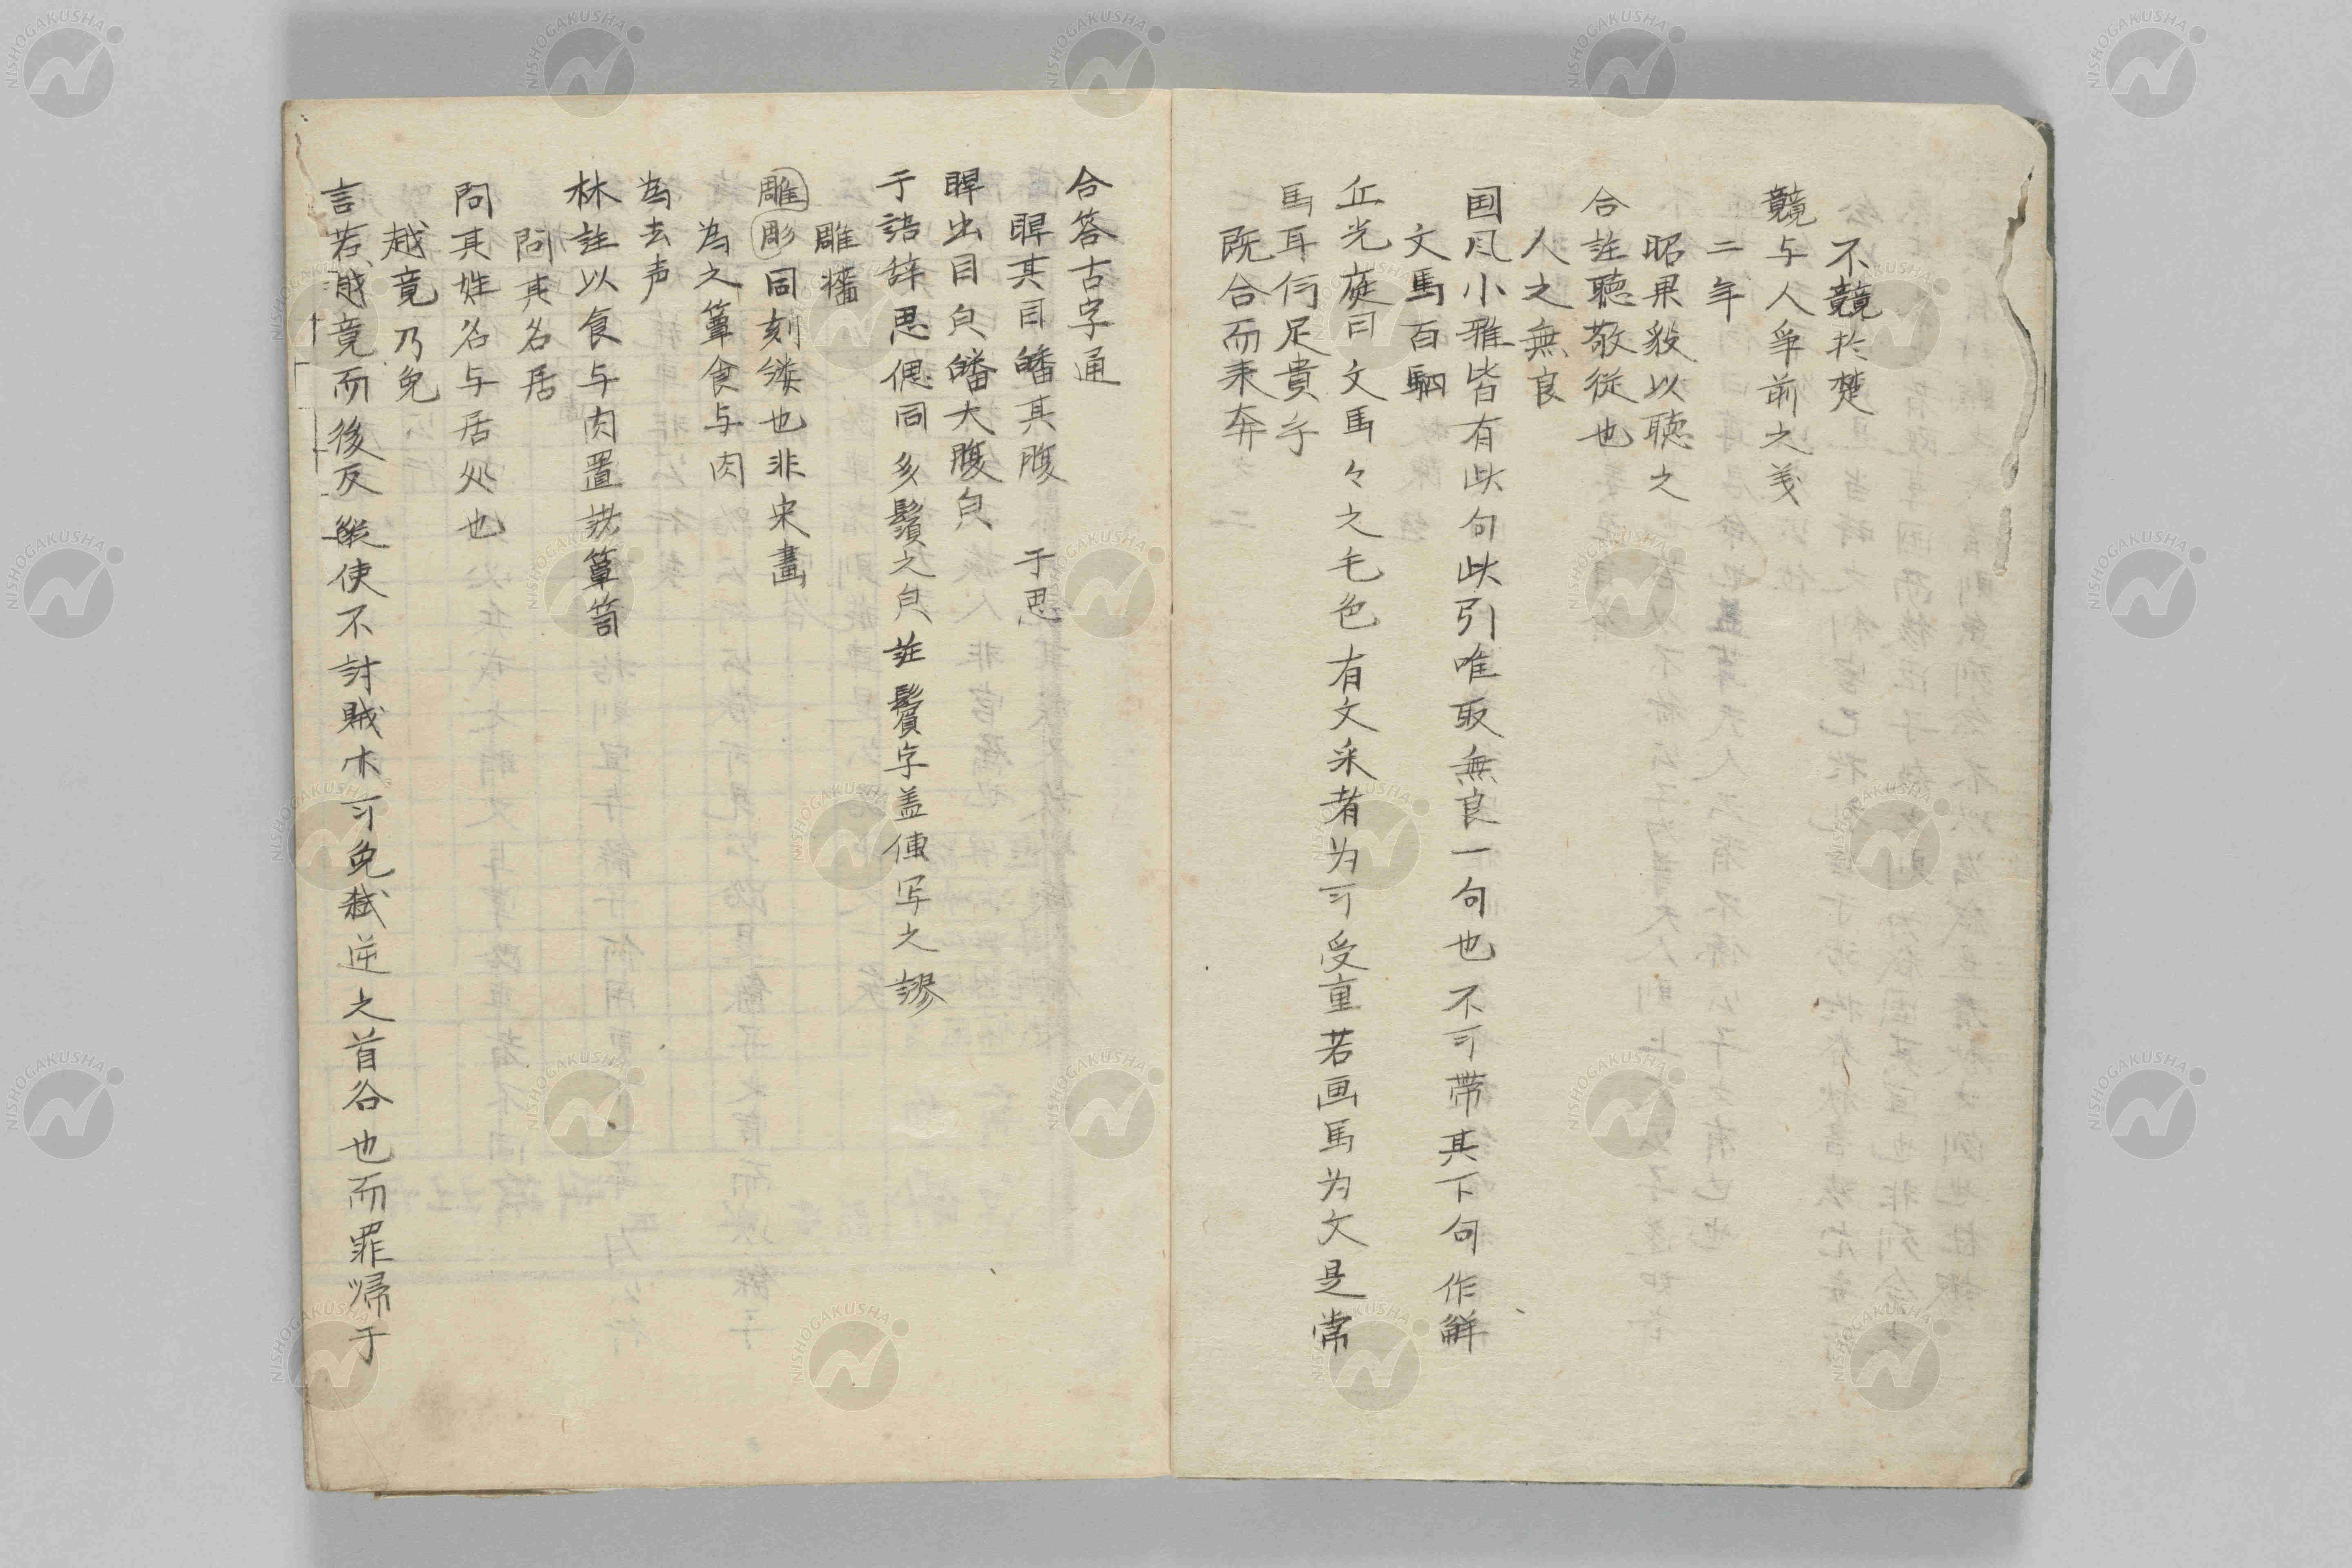 不競於楚
競与人争前之義
二年
昭果毅以聴之
合註聴敬従也
人之無良
国风小雅皆有此句此引唯取無良一句也不可帯其下句作解
文馬百駟
丘光庭曰文馬々之毛色有文采者为可受重若画馬为文是常
馬耳何足貴乎
既合而来奔
合答古字通
睅其目皤其腹 于思
睅出目皃皤大腹皃
于語辞思偲同多鬚之皃註鬢字盖傳写之謬
雕墻
雕彫同刻镂也非宋畫
為之簞食与肉
為去声
林註以食与肉置諸簞笥
問其名居
問其姓名与居処也
越竟乃免
言若越竟而後反縦使不討賊亦可免弑逆之首咎也而罪帰于
NISHOGAKUSHA